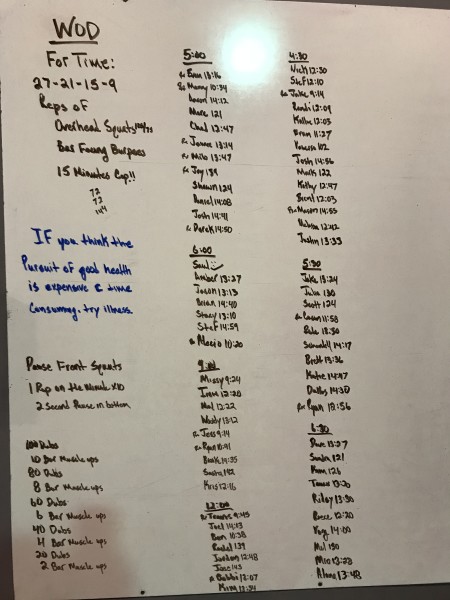 WOD
For Time:
27-21-15-9
Reps of
Overhead Squats
Bar Facing Burpees
15 Minutes Cap!!
72
72
144
IF you think the
Pursuit of good health
is expensive & time
Consuming, try illness.
Pause Front Squats
1 Rep on the Minute x10
2 Second Pause in bottom
100 Dubs
10 Bar Muscle ups
80 Dubs
8 Bar Muscle ups
60 Dubs
6 Bar Muscle ups
40 Dubs
4 Bar Muscle ups
20 Dubs
2 Bar Muscle ups
5:00
Rx Evan 13:16
Rx Manny 10:34
Aaron 14:12
Marc 121
Chad 12:47
Rx 13:14
Rx Milo 13:47
Rx Joy 139
Shawn 124
Daniel 14:08
Josh 14:41
Rx Derek 14:50
6:00
Saul
Amber 13:27
Jason 13:13
Brian 14:40
Stacy 13:10
Stef 14:59
Rx Macio 10:20
9:00
Missy 9:24
Irene 12:20
Mel 12:22
Woody 13:12
Rx Jess 9:14
Rx Ryan 10:41
14:35
142
Kris 12:16
12:00
Rx 9:45
Joel 14:13
Ben 10:38
139
Jordan 12:48
143
Rx Bobbi 13:07
4:30
Nick 12:30
Stef 12:10
Rx Jake 9:14
Randi 12:09
Kallie 12:03
Fran 11:27
Vanessa 102
Josh 14:56
Mark 122
Kathy 12:47
Brent 12:03
Rx Mason 14:55
Melissa 12:42
Justin 13:33
5:30
Jake 13:24
Julia 130
Scott 124
Rx 11:58
13:30
14:17
Brett 13:36
Katie 14:47
Dallas 14:30
Rx Ryan 13:56
6:30
Dave 13:27
121
126
13:20
Riley 13:30
Reece 12:20
14:00
Mel 130
13:23
13:48